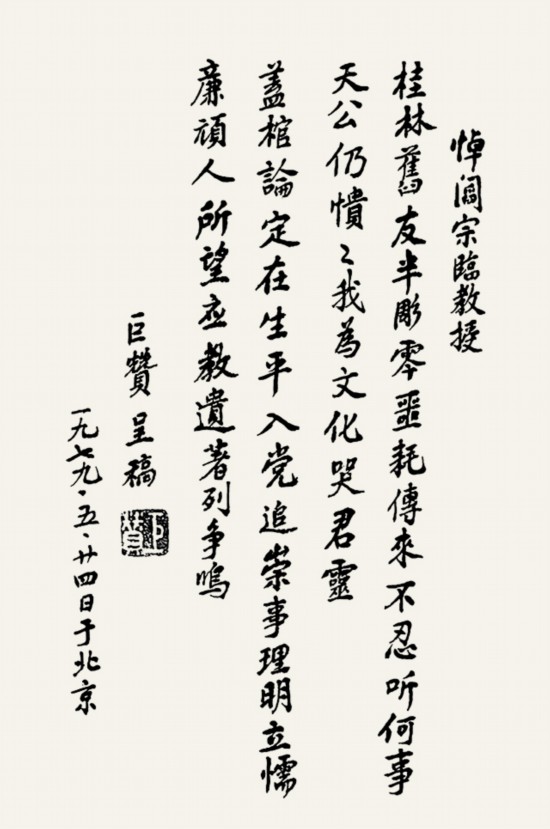 悼阎宗臨教授
桂林舊友半彫零噩耗傳來不忍听何事
天公仍憒〻我為文化哭君靈
蓋棺論定在生平入党追崇事理明立懦
廉頑人所望应教遺著列争鳴
巨赞呈稿
巨赞
一九七九·五·廿四日于北京